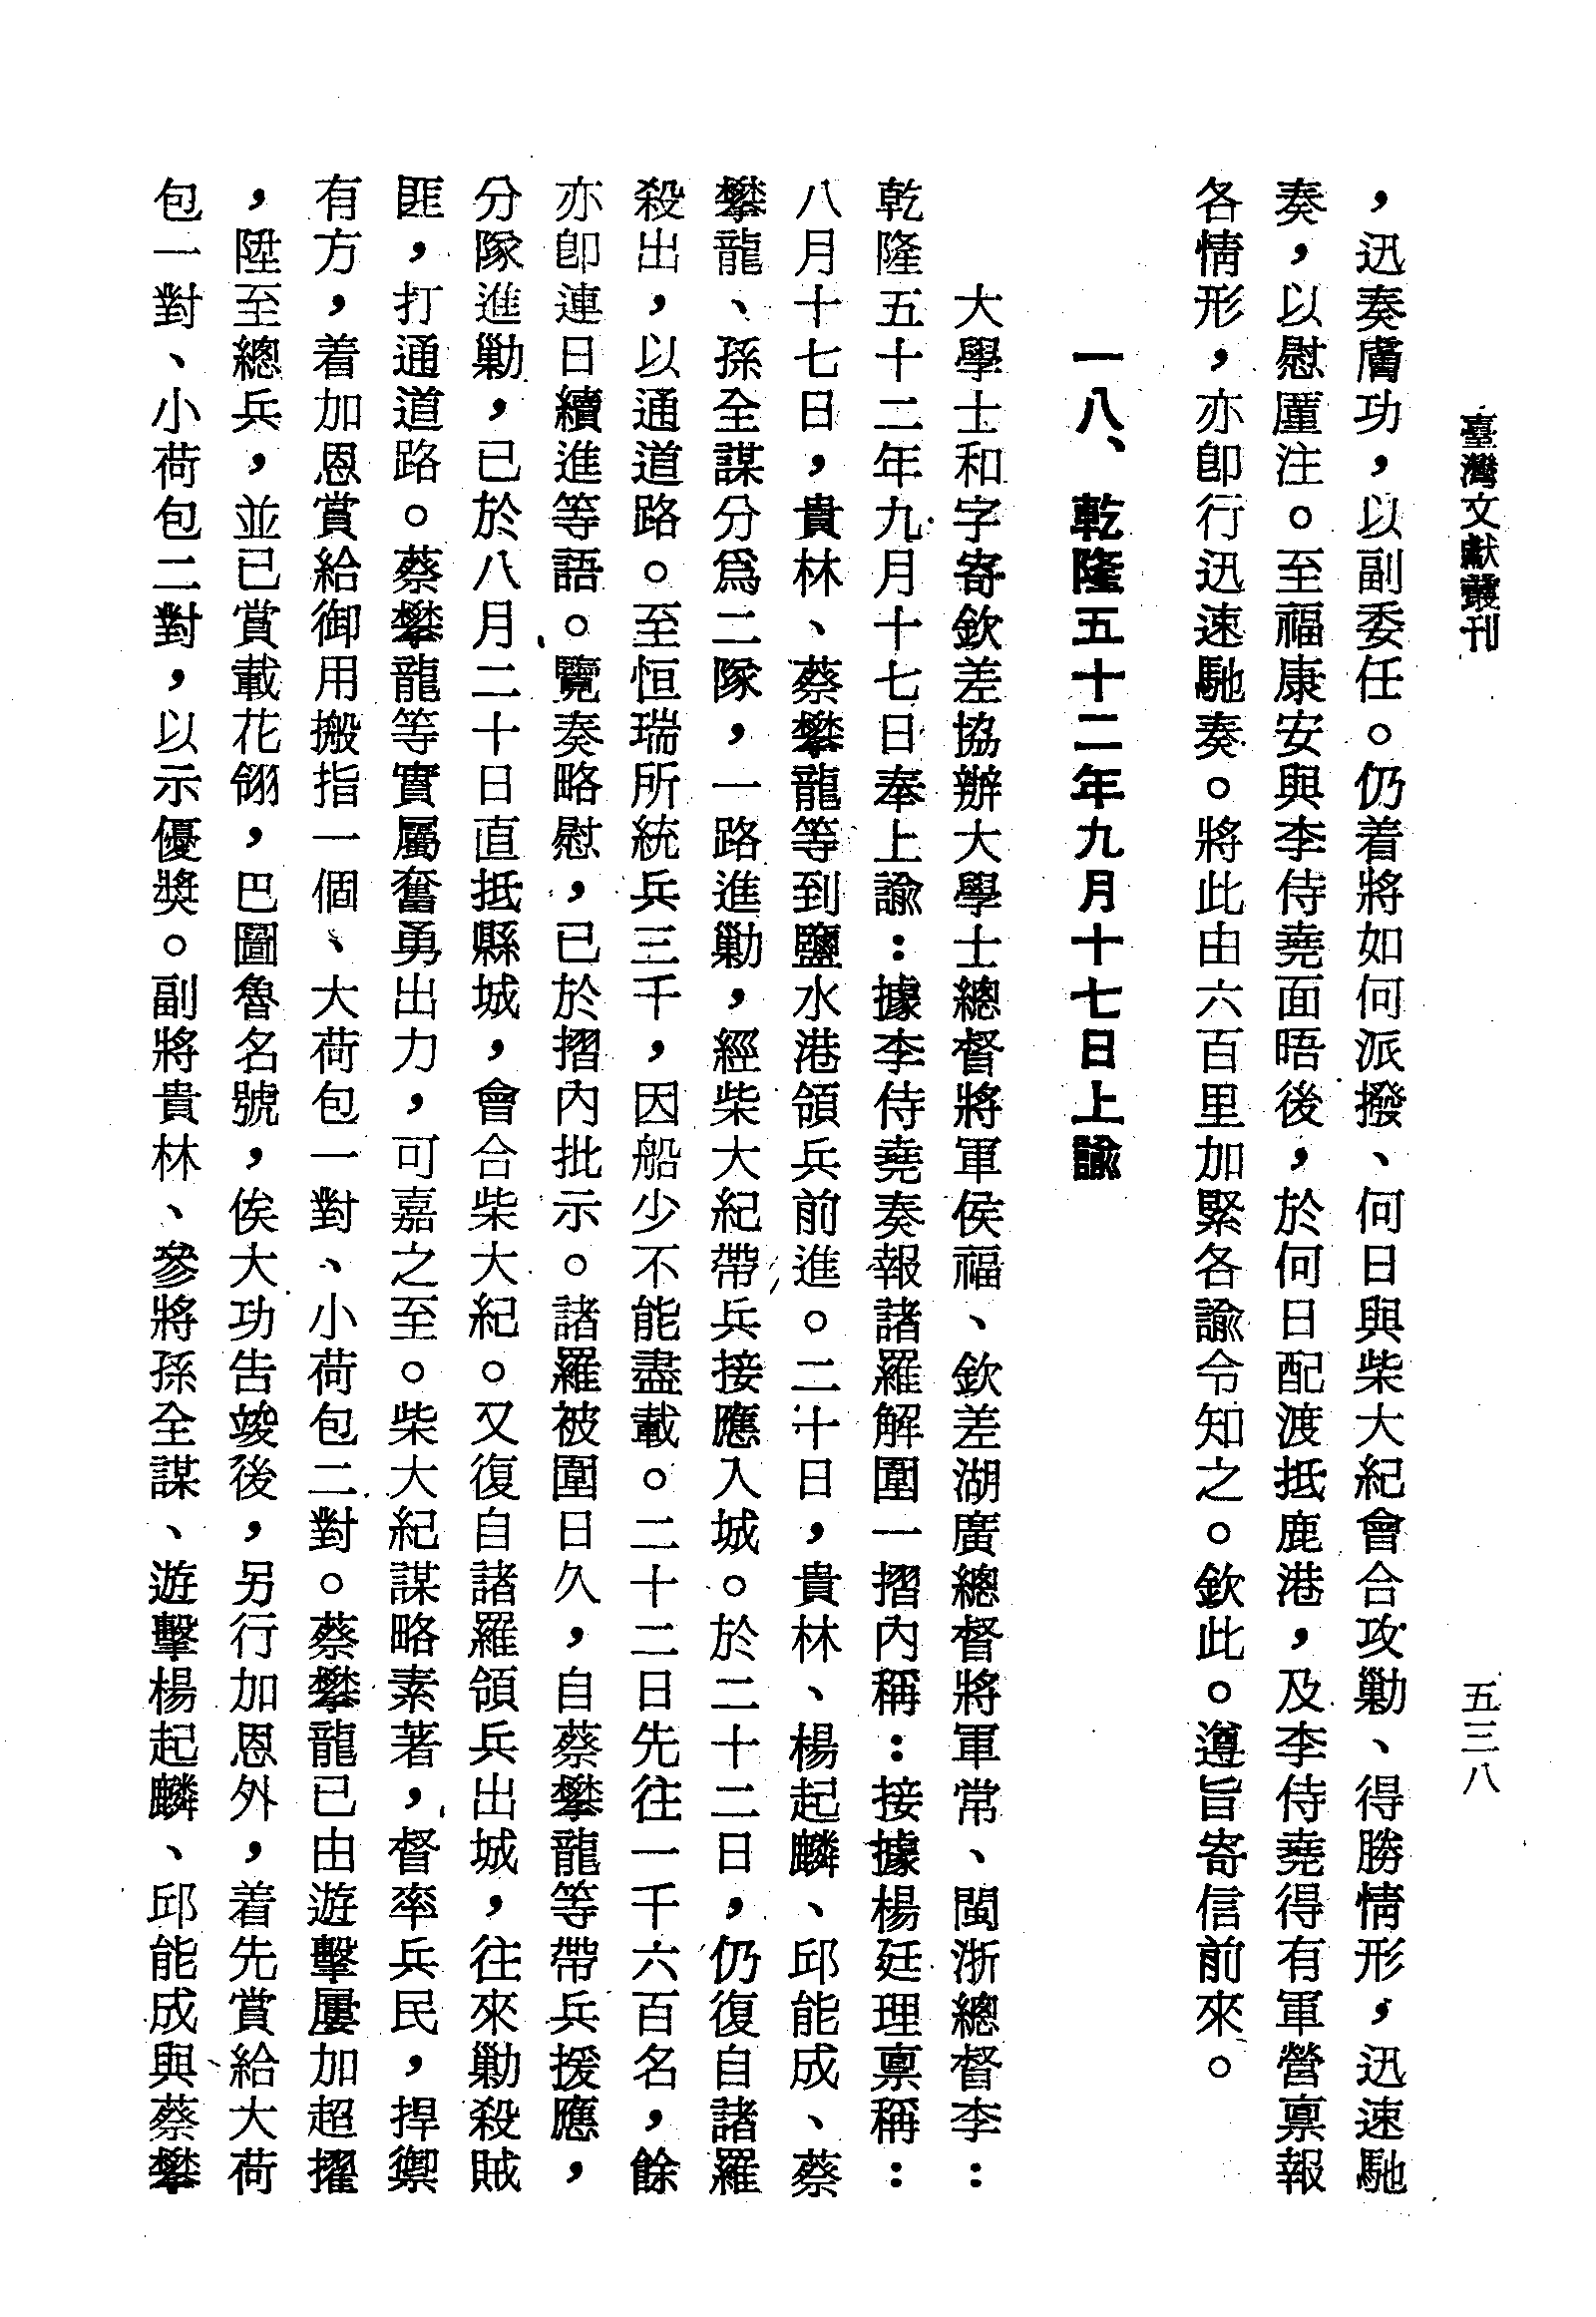 臺灣文獻叢刊
五三八
，迅奏膚功，以副委任。仍着將如何派撥、何日與柴大紀會合攻勦、得勝情形，迅速馳
奏，以慰厪注。至福康安與李侍堯面晤後，於何日配渡抵鹿港，及李侍堯得有軍營禀報
各情形，亦卽行迅速馳奏。將此由六百里加緊各諭令知之。欽此。遵旨寄信前來。
一八、乾隆五十二年九月十七日上諭
大學士和字寄欽差協辦大學士總督將軍侯福、欽差湖廣總督將軍常、閩浙總督李：
乾隆五十二年九月十七日奉上諭：據李侍堯奏報諸羅解圍一摺內稱：接據楊廷理禀稱：
八月十七日，貴林、蔡攀龍等到鹽水港領兵前進。二十日，貴林、楊起麟、邱能成、蔡
攀龍、孫全謀分爲二隊，一路進勦，經柴大紀帶兵接應入城。於二十二日，仍復自諸羅
殺出，以通道路。至恒瑞所統兵三千，因船少不能盡載。二十二日先往一千六百名，餘
亦卽連日續進等語。覽奏略慰，已於摺內批示。諸羅被圍日久，自蔡攀龍等帶兵援應，
分隊進勦，已於八月二十日直抵縣城，會合柴大紀。又復自諸羅領兵出城，往來勦殺賊
匪，打通道路。蔡攀龍等實屬奮勇出力，可嘉之至。柴大紀謀略素著，督率兵民，捍禦
有方，着加恩賞給御用搬指一個、大荷包一對、小荷包二對。蔡攀龍已由遊擊屢加超擢
，陞至總兵，並已賞載花翎，巴圖魯名號，俟大功告竣後，另行加恩外，着先賞給大荷
包一對、小荷包二對，以示優獎。副將貴林、參將孫全謀、遊擊楊起麟、邱能成與蔡攀